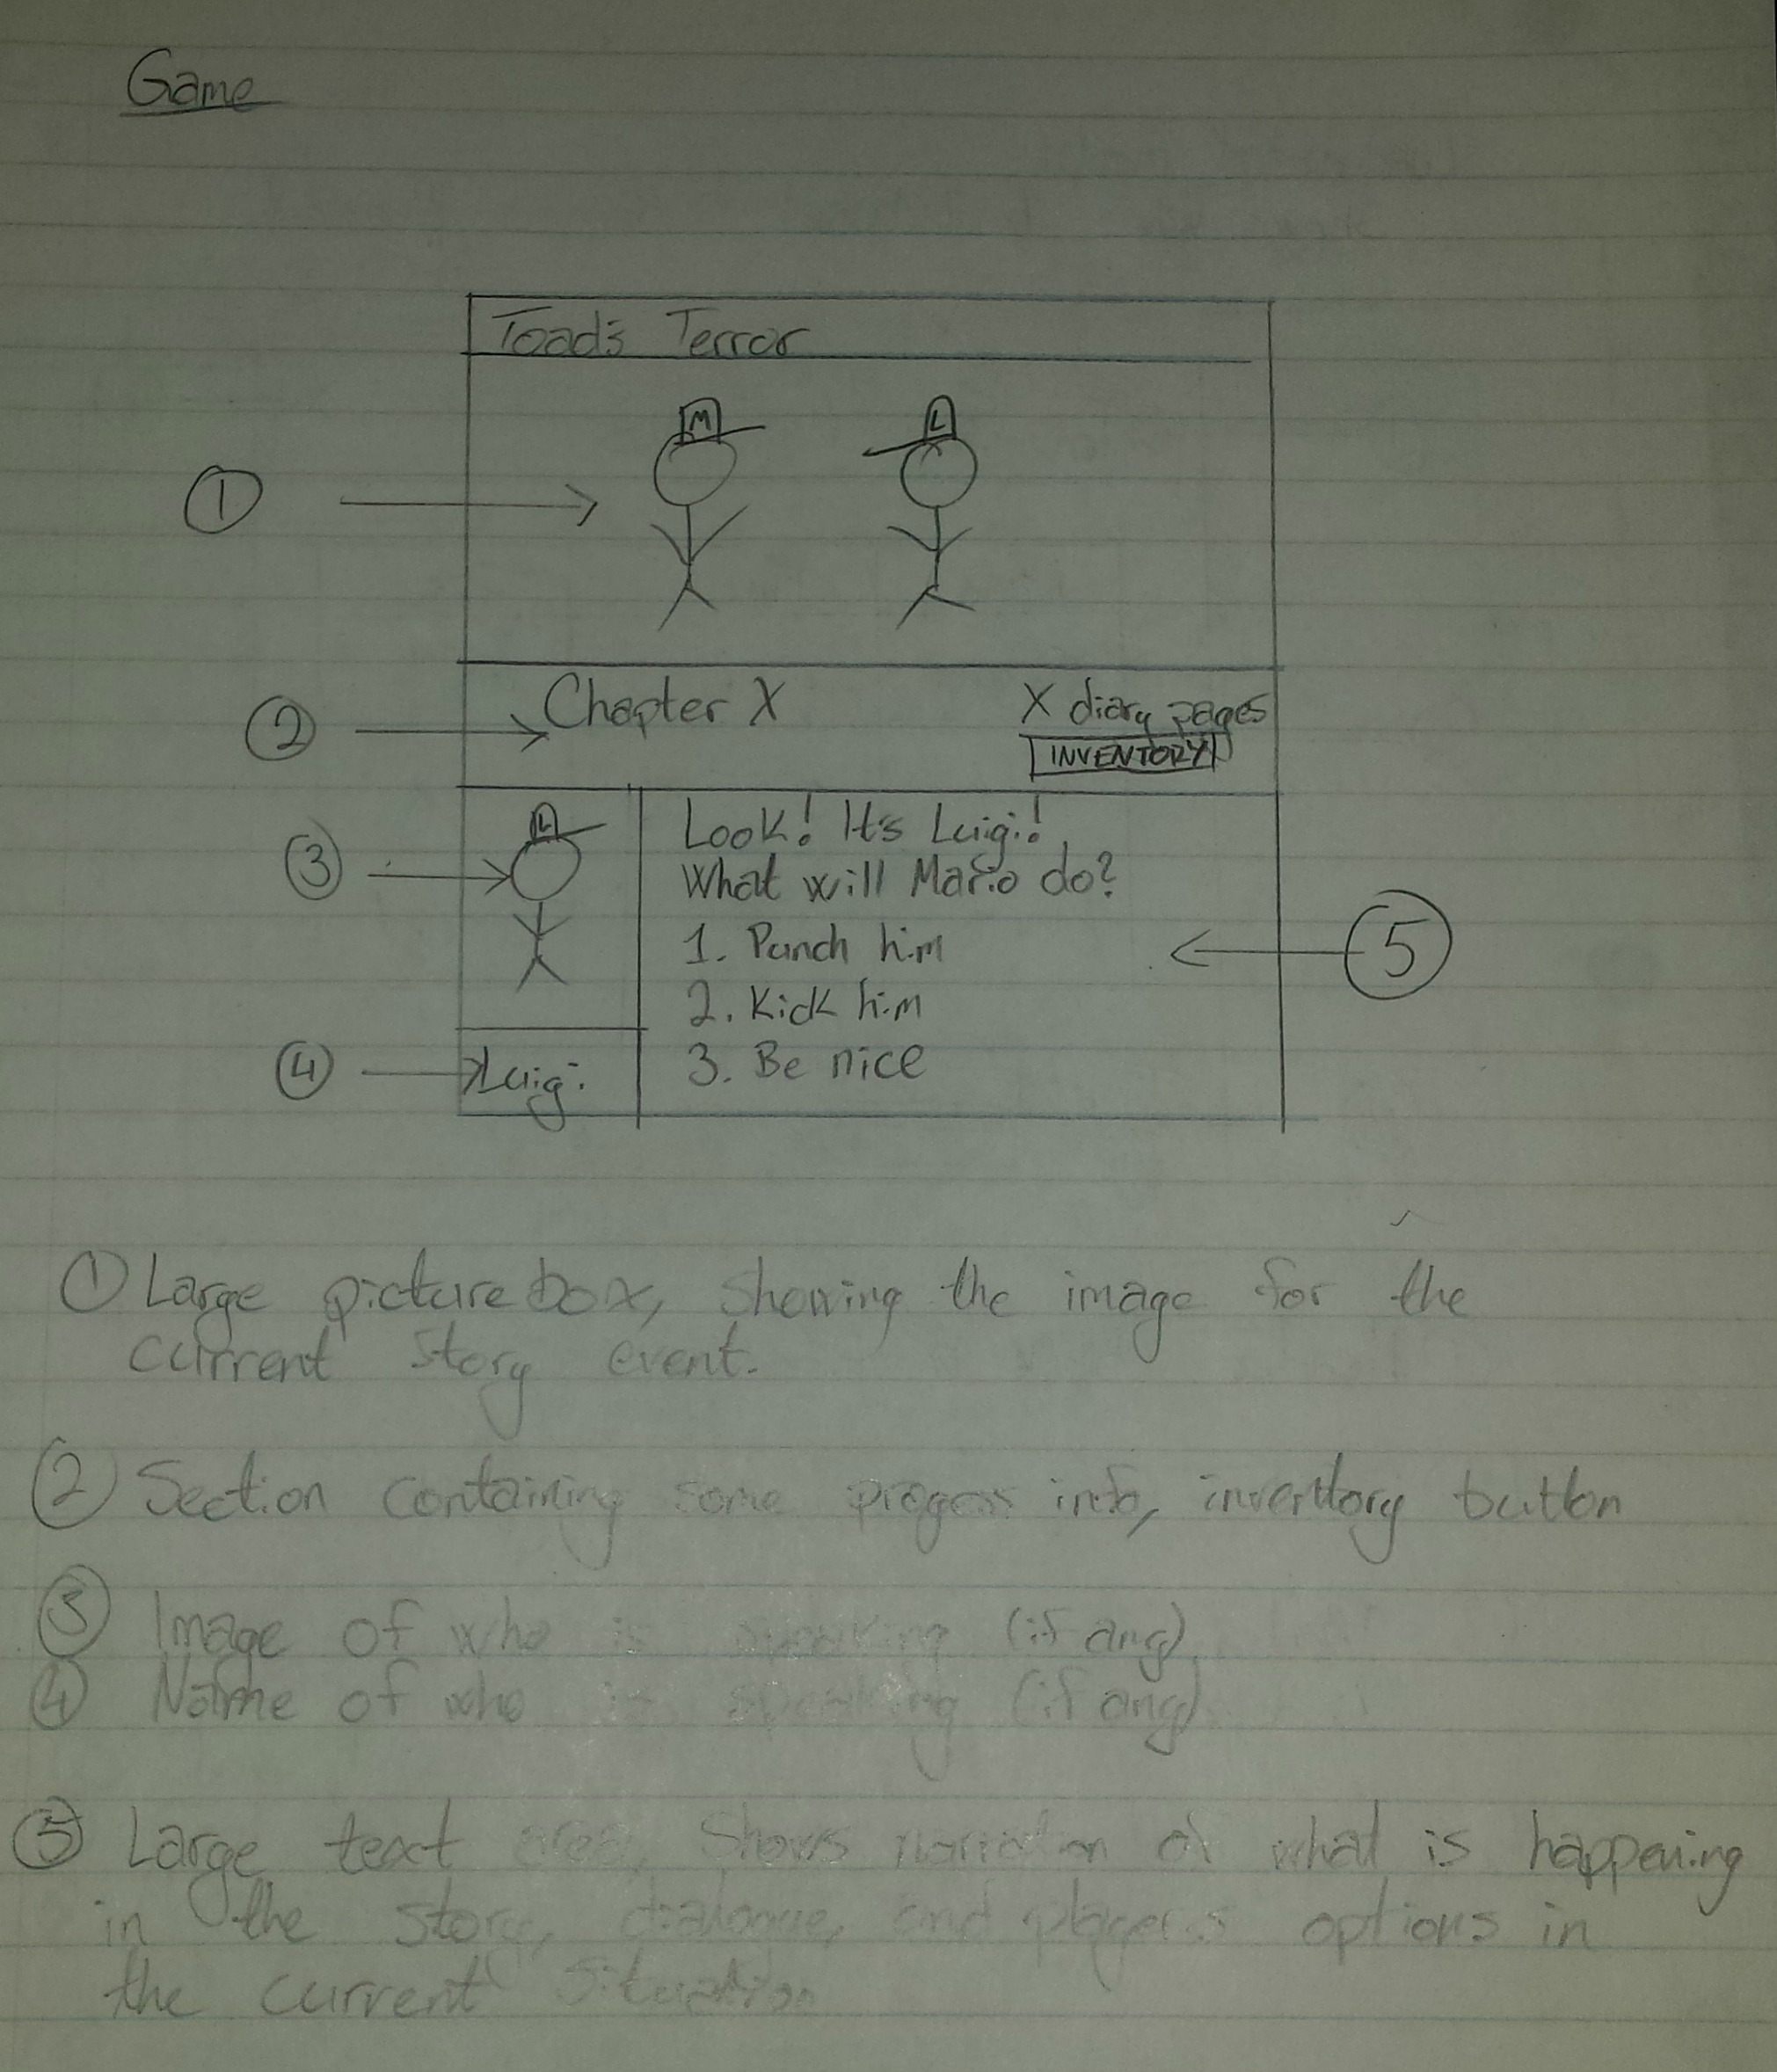 Game
Toad's Terror
M
L
1
2
Chapter X
X diary pages
INVENTORY
3
L
Look! It's Luigi!
What will Mario do?
1. Punch him
2. Kick him
3. Be nice
5
4
Luigi
1 Large picture box, showing the image for the
current story event.
2 Section containing some progess info, inventory button
3 Image of who is speaking (if any)
4 Name of who is speaking (if any)
5 Large text area, shows narration of what is happening
in the story, dialogue, and player's options in
the current situation